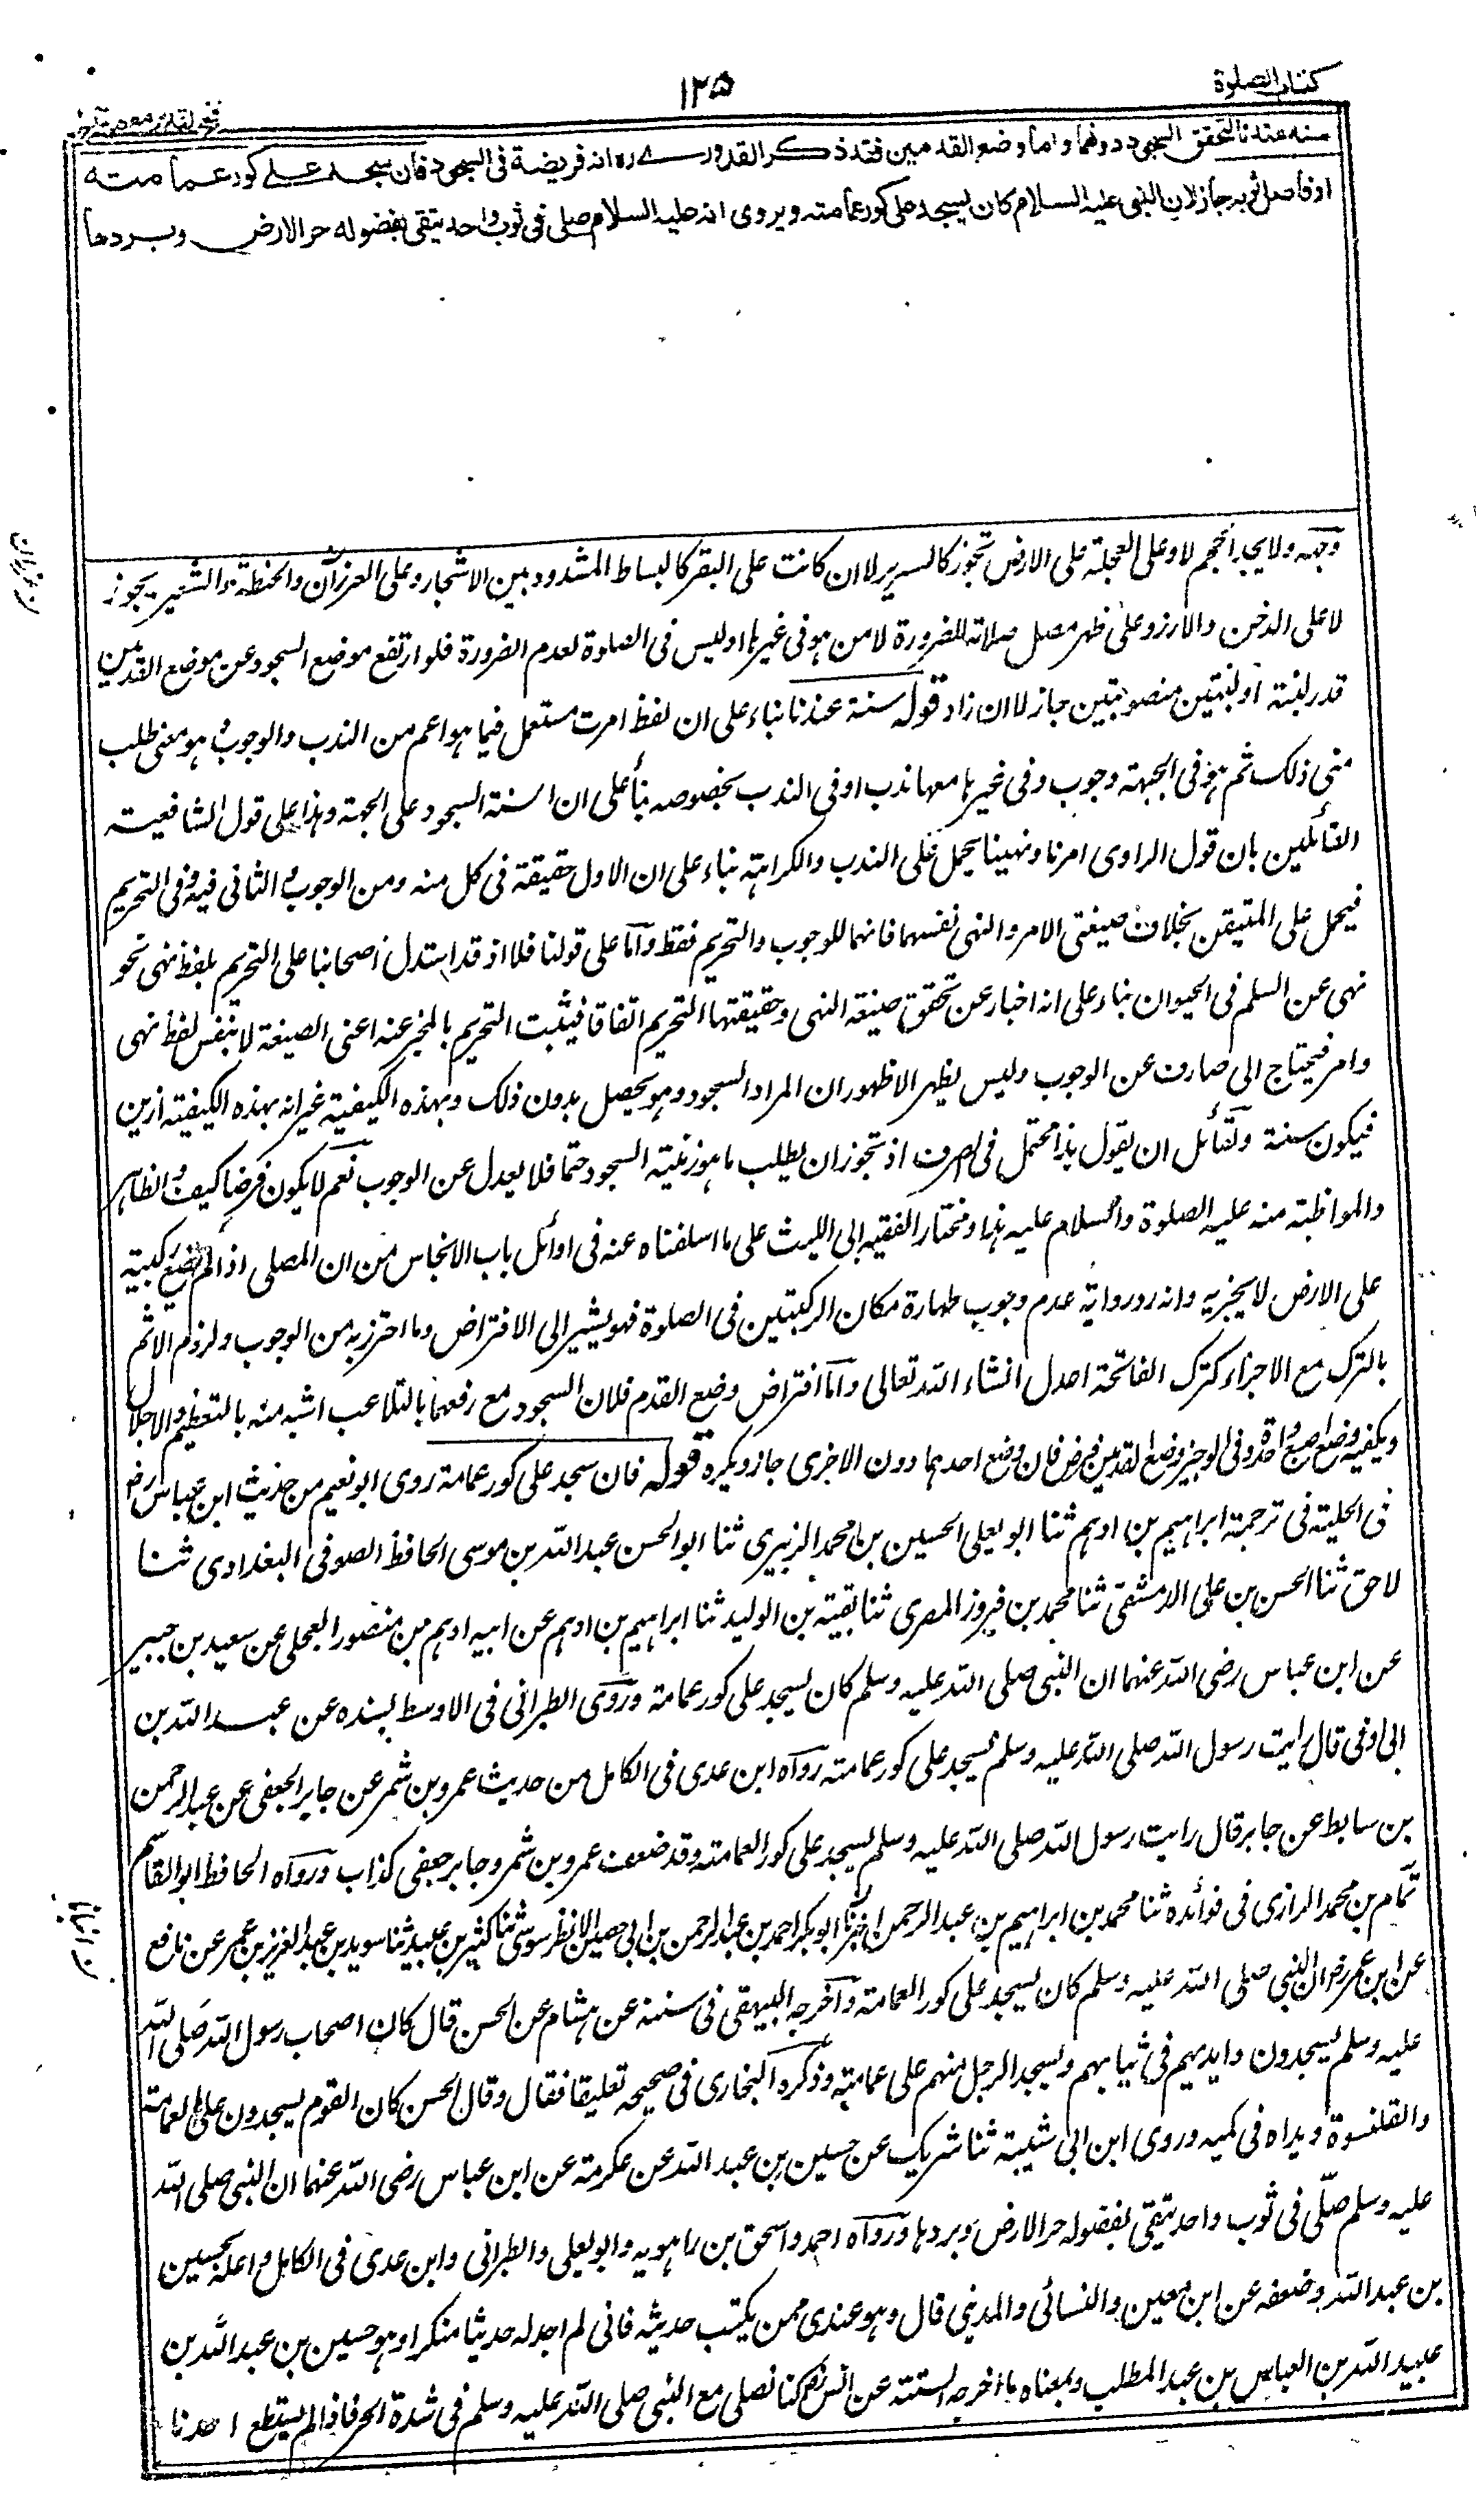 كتاب الصلوة
١٢٥
فتح القدير مع هداية
سنة عندنا لتحقق السجود دونهما واما وضع القدمين فقد ذكر القدوري ره انه فريضة فى السجود فان سجد على كور عمامته
او فاضل ثوبه جاز لان النبي عليه السلام كان يسجد على كور عمامته ويروى انه عليه السلام صلى فى ثوب واحد يتقى بفضوله حر الارض وبردها
وجهه ولا يجد الحجم لا وعلى العجلة على الارض تجوز كالسرير لا ان كانت على البقر كالبساط المشدود بين الاشجار وعلى العرزال والحنطة والشعير يجوز
لا على الدخن والارز وعلى ظهر مصل صلاته للضرورة لا من هو فى غيرها او ليس فى الصلوة لعدم الضرورة فلو ارتفع موضع السجود عن موضع القدمين
قدر لبنة او لبنتين منصوبتين جاز لا ان زاد قوله سنة عندنا بناء على ان لفظ امرت مستعمل فيما هو اعم من الندب والوجوب و هو معنى طلب
منى ذلك ثم هو فى الجبهة وجوب وفى غيرها معها ندب او فى الندب بخصوصه بناء على ان السنة السجود على الجبهة وهذا على قول الشافعية
القائلين بان قول الراوى امرنا ونهينا يحمل على الندب والكراهة بناء على ان الاول حقيقة فى كل منه ومن الوجوب و الثانى فيه وفى التحريم
فيحمل على المتيقن بخلاف صيغتى الامر والنهى نفسهما فانهما للوجوب والتحريم فقط واما على قولنا فلا اذ قد استدل اصحابنا على التحريم بلفظ نهى نحو
نهى عن السلم فى الحيوان بناء على انه اخبار عن تحقق صيغة النهى وحقيقتها التحريم اتفاقا فيثبت التحريم بالمخبر عنه اعنى الصيغة لا بنفس لفظ نهى
وامر فيحتاج الى صارف عن الوجوب وليس يظهر الا ظهور ان المراد السجود وهو يحصل بدون ذلك وبهذه الكيفية غير انه بهذه الكيفية ازين
فيكون سنة ولقائل ان يقول هذا محتمل فى الصرف اذ تجوز ان يطلب ما هو زينة السجود حتما فلا يعدل عن الوجوب نعم لا يكون فرضا كيف و الظاهر
والمواظبة منه عليه الصلوة والسلام عليه هذا ومختار الفقيه ابى الليث على ما اسلفناه عنه فى اوائل باب الانجاس من ان المصلى اذا لم يضع ركبتيه
على الارض لا يجزيه وانه رد رواية عدم وجوب طهارة مكان الركبتين فى الصلوة فهو يشير الى الافتراض وما احترز به من الوجوب ولزوم الاثم
بالترك مع الاجزاء كترك الفاتحة اعدل انشاء الله تعالى واما افتراض وضع القدم فلان السجود مع رفعهما بالتلاعب اشبه منه بالتعظيم والاجلال
ويكفيه وضع اصبع واحدة وفى الوجيز وضع القدمين فرض فان وضع احدهما دون الاخرى جاز ويكره قوله فان سجد على كور عمامة روى ابو نعيم من حديث ابن عباس رض
فى الحلية فى ترجمة ابراهيم بن ادهم ثنا ابو يعلى الحسين بن محمد الزبيرى ثنا ابو الحسن عبد الله بن موسى الحافظ الصوفى البغدادى ثنا
لاحق ثنا الحسن بن على الدمشقى ثنا محمد بن فيروز المصرى ثنا بقية بن الوليد ثنا ابراهيم بن ادهم عن ابيه ادهم من منصور العجلى عن سعيد بن جبير
عن ابن عباس رضى الله عنهما ان النبى صلى الله عليه وسلم كان يسجد على كور عمامة وروى الطبرانى فى الاوسط بسنده عن عبد الله بن
ابى اوفى قال رايت رسول الله صلى الله عليه وسلم يسجد على كور عمامته رواه ابن عدى فى الكامل من حديث عمرو بن شمر عن جابر الجعفى عن عبد الرحمن
بن سابط عن جابر قال رايت رسول الله صلى الله عليه وسلم يسجد على كور العمامته وقد ضعف عمرو بن شمر وجابر جعفى كذاب ورواه الحافظ ابو القاسم
تمام بن محمد الرازى فى فوائده ثنا محمد بن ابراهيم بن عبد الرحمن اخبرنا ابو بكر احمد بن عبد الرحمن بن ابى حصين الانطرسوسى ثنا كثير بن عبيد ثنا سويد بن عبد العزيز بن عمر عن نافع
عن ابن عمر رض ان النبى صلى الله عليه وسلم كان يسجد على كور العمامة واخرجه البيهقى فى سننه عن هشام عن الحسن قال كان اصحاب رسول الله صلى الله
عليه وسلم يسجدون وايديهم فى ثيابهم ويسجد الرجل منهم على عمامته وذكره البخارى فى صحيحه تعليقا فقال وقال الحسن كان القوم يسجدون على العمامة
والقلنسوة ويداه فى كميه وروى ابن ابى شيبة ثنا شريك عن حسين بن عبد الله عن عكرمة عن ابن عباس رضى الله عنهما ان النبى صلى الله
عليه وسلم صلى فى ثوب واحد يتقى بفضوله حر الارض وبردها ورواه احمد واسحق بن راهويه وابو يعلى والطبرانى وابن عدى فى الكامل واعله بحسين
بن عبد الله وضعفه عن ابن معين والنسائى والمدينى قال وهو عندى ممن يكتب حديثه فانى لم اجد له حديثا منكرا وهو حسين بن عبد الله بن
عبيد الله بن العباس بن عبد المطلب وبمعناه ما اخرجه الستة عن انس رض كنا نصلى مع النبى صلى الله عليه وسلم فى شدة الحر فاذا لم يستطع احدنا